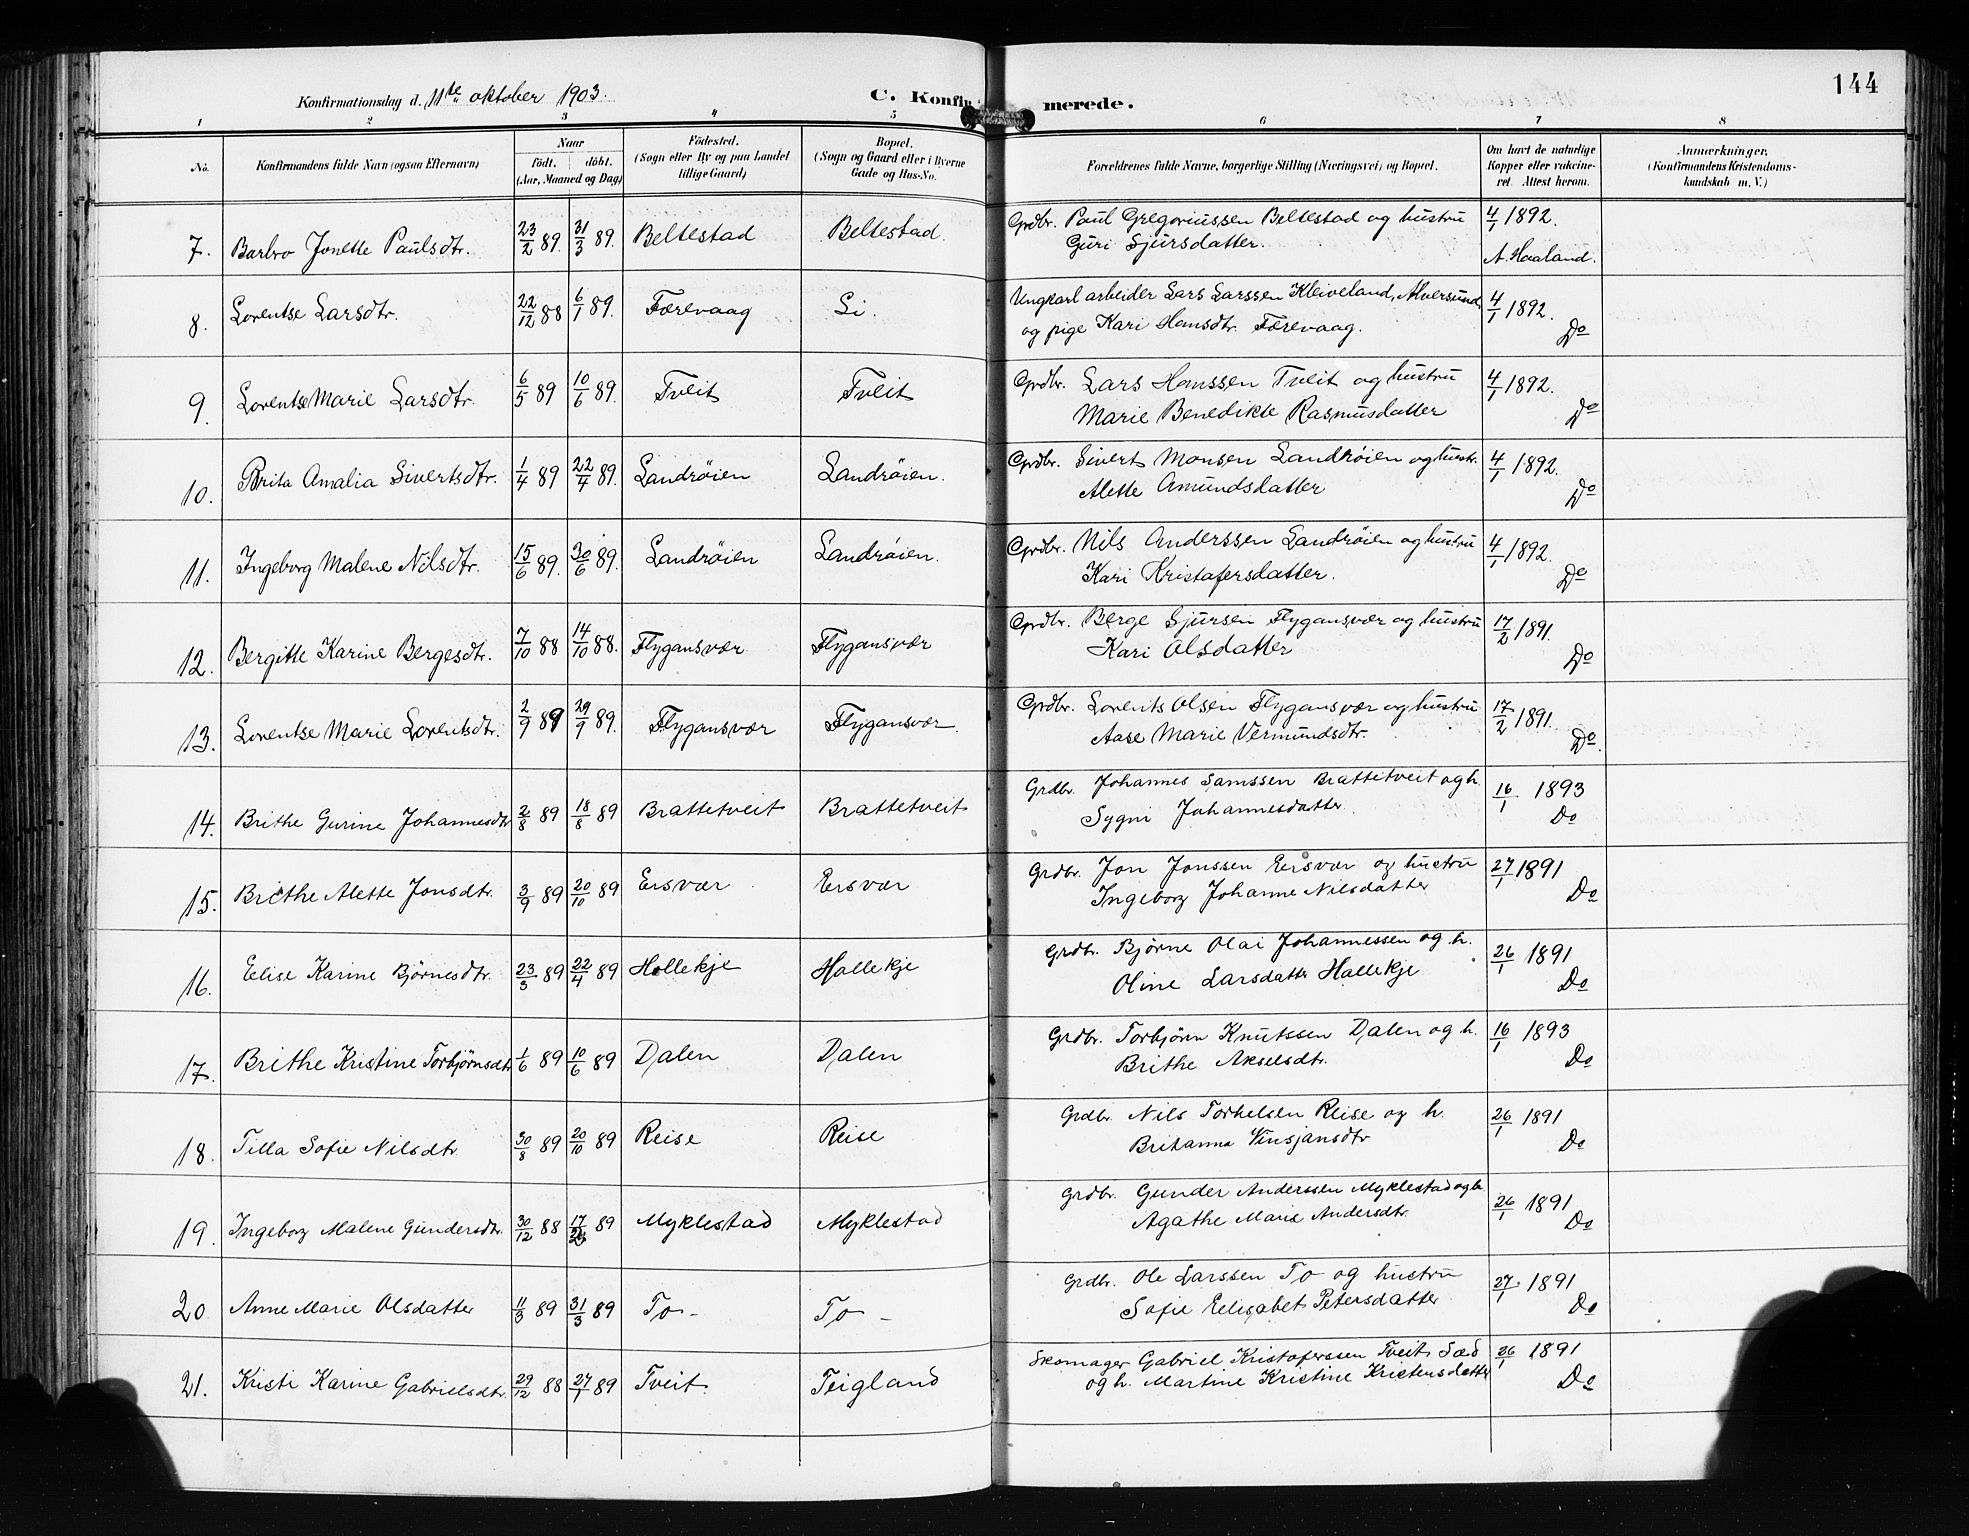 144
Konfirmationsdag d. 11te oktober 1903.
C. Konfirmerede.
1 2 3 4 5 6 7 8
No. Konfirmandens fulde Navn (ogsaa Efternavn) Naar födt. döbt. (Aar, Maaned og Dag) Födested. (Sogn eller By og paa Landet tillige Gaard) Bopæl. (Sogn og Gaard eller i Byerne Gade og Hus-No. Forældrenes fulde Navne, borgerlige Stilling (Næringsvei) og Bopæl. Om havt de naturlige Kopper eller vakcineret. Attest herom. Anmærkninger. (Konfirmandens Kristendomskundskab m. V.)
7. Barbro Jonette Paulsdtr. 23/2 89. 31/3 89. Beltestad Beltestad. Grdbr. Paul Gregoriussen Beltestad og hustru 4/1 1892.
Guri Sjursdatter. A. Haaland.
8. Lorentse Larsdtr. 22/12 88 6/1 89. Færevaag Li. Ungkarl arbeider Lars Larssen Kleiveland, Alversund 4/1 1892.
og pige Kari Hansdtr. Færevaag. Do
9. Lorentse Marie Larsdtr. 6/5 89 10/6 89. Tveit Tveit Grdbr. Lars Hanssen Tveit og hustru 4/1 1892.
Marie Benedikte Rasmusdatter Do
10. Brita Amalia Sivertsdtr. 1/4 89 22/4 89. Landröien Landröien. Grdbr. Sivert Monsen Landröien og hustr. 4/1 1892.
Alette Amundsdatter Do
11. Ingeborg Malene Nilsdtr. 15/6 89. 30/6 89. Landröien Landröien. Grdbr. Nils Anderssen Landröien og hustru 4/1 1892.
Kari Kristafersdatter. Do
12. Bergitte Karine Bergesdtr. 7/10 88 14/10 88. Flygansvær Flygansvær Grdbr. Berge Sjursen Flygansvær og hustru 17/2 1891.
Kari Olsdatter Do
13. Lorentse Marie Lorentsdtr. 2/9 89 29/9 89. Flygansvær Flygansvær. Grdbr. Lorents Olsen Flygansvær og hustru 17/2 1891.
Aase Marie Vermundsdtr. Do.
14. Brithe Gurine Johannesdtr 2/8 89 18/8 89 Brattetveit Brattetveit Grdbr. Johannes Samssen Brattetveit og h. 16/1 1893
Sygni Johannesdatter Do
15. Brithe Alette Jonsdtr. 3/9 89 20/10 89 Ersvær Ersvær Grdbr. Jon Jonssen Ersvær og hustru 27/1 1891
Ingeborg Johanne Nilsdatter Do
16. Eelise Karine Bjørnesdtr. 23/3 89 22/4 89 Hallekje Hallekje Grdbr. Bjørne Olai Johannessen og h. 26/1 1891
Oline Larsdatter Hallekje Do
17. Brithe Kristine Torbjørnsdtr 1/6 89 10/6 89 Dalen Dalen Grdbr. Torbjørn Knutssen Dalen og h. 16/1 1893
Brithe Akselsdtr. Do
18. Tilla Sofie Nilsdtr. 30/8 89 20/10 89 Reise Reise Grdbr. Nils Torkelsen Reise og h. 26/1 1891
Britanna Vinsjansdtr Do
19. Ingeborg Malene Gundersdtr. 30/12 88 17/2 89 Myklestad Myklestad Grdbr. Gunder Anderssen Myklestad og h. 26/1 1891
Agathe Marie Andersdtr. Do
20 Anne Marie Olsdatter 11/3 89 31/3 89 To - To - Grdbr. Ole Larssen To og hustru 27/1 1891
Sofie Eelisabet Petersdatter Do
21. Kristi Karine Gabrielsdtr. 29/12 88 27/1 89 Tveit. Teigland Skomager Gabriel Kristoferssen Tveit Sæd 26/1 1891
og h. Martine Kristine Kristensdatter Do